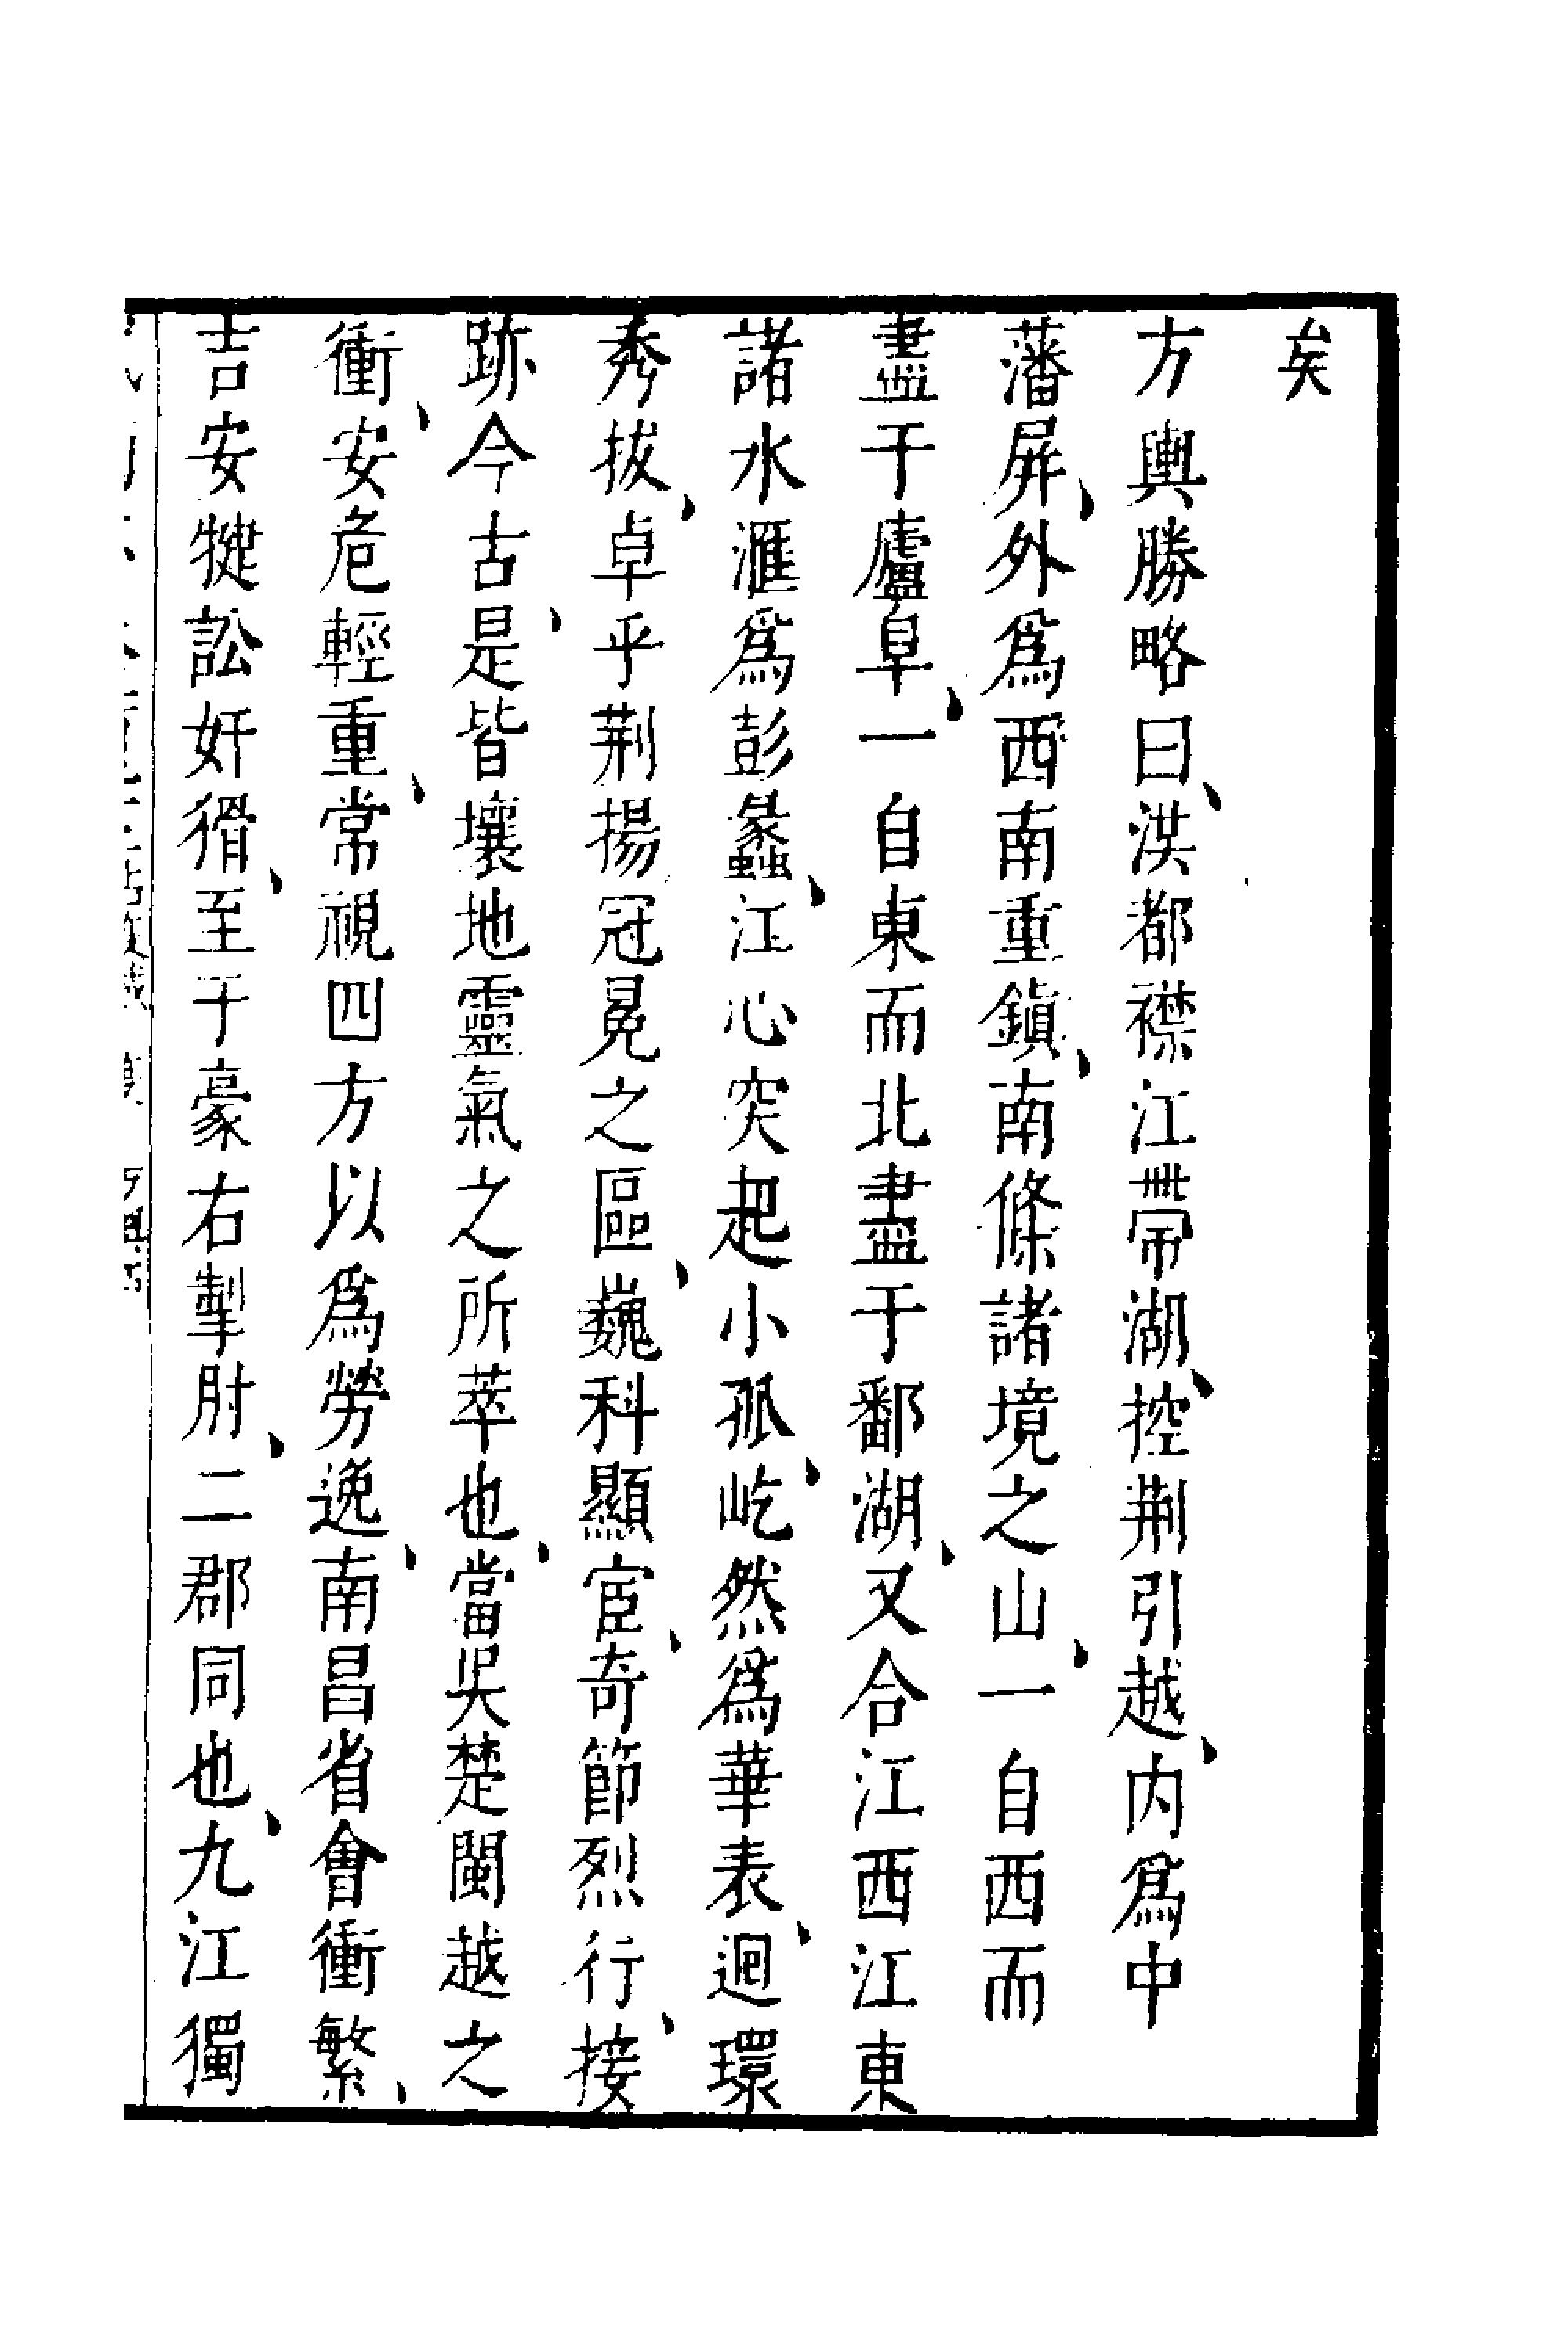 矣
方輿勝略曰、洪都襟江帶湖、控荆引越、内爲中
藩屏、外爲西南重鎭、南條諸境之山、一自西而
盡于廬阜、一自東而北盡于鄱湖、又合江西江東
諸水滙爲彭蠡、江心突起小孤、屹然爲華表、迴環
秀拔、卓乎荆揚冠冕之區、巍科顯宦、奇節烈行、接
跡今古、是皆壤地靈氣之所萃也、當吳楚閩越之
衝、安危輕重、常視四方以爲勞逸、南昌省會衝繁、
吉安健訟奸猾、至于豪右掣肘、二郡同也、九江獨